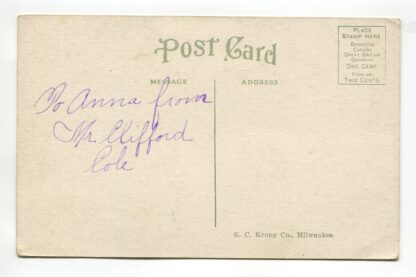 Post Card
MESSAGE
ADDRESS
PLACE
STAMP HERE
DOMESTIC
CANADA
GREAT BRITAIN
GERMANY
ONE CENT
FOREIGN,
TWO CENTS
To Anna from
Mr. Clifford
Cole
E. C. Kropp Co., Milwaukee.